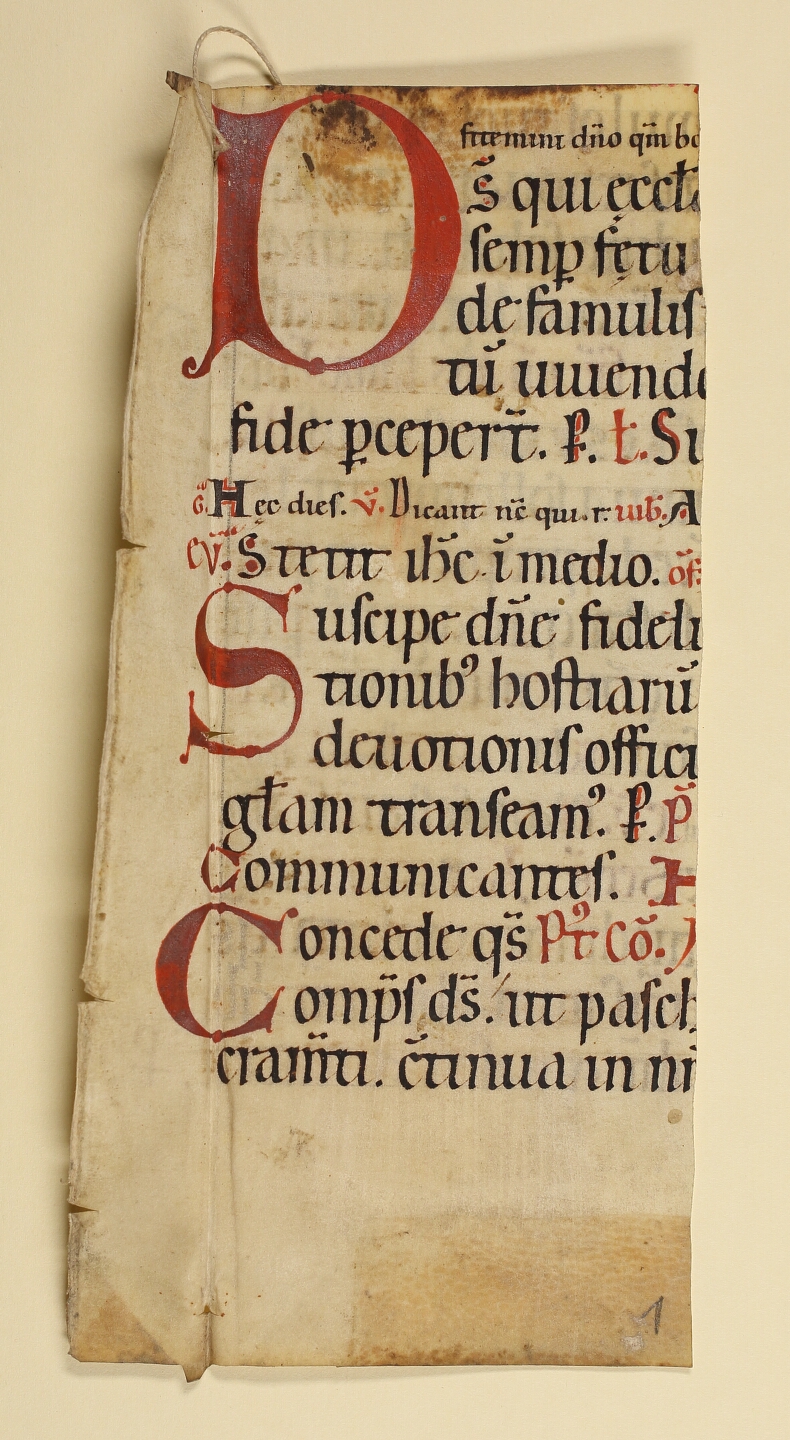 fitemini dño qm̄ bo
D S̄ qui ęccła
semp fętu
de famulis
tū uiuendo
fide pcepert̄. P. L. Su
G. Hęc dies. V̄. Dicant nc̄ qui. r. iub̄. A
EV̄. Stetit ih̄c. ī medio. Of
Suscipe dn̄e fideli
tionib⁹ hostiarū
deuotionis offici
głam transeam⁹. P. P̄
Communicantes. H
Concede qs̄ P⁹t cō.
Comp̄s ds̄. ut pasch
cram̄ti. c̄tinua in nr̄
1